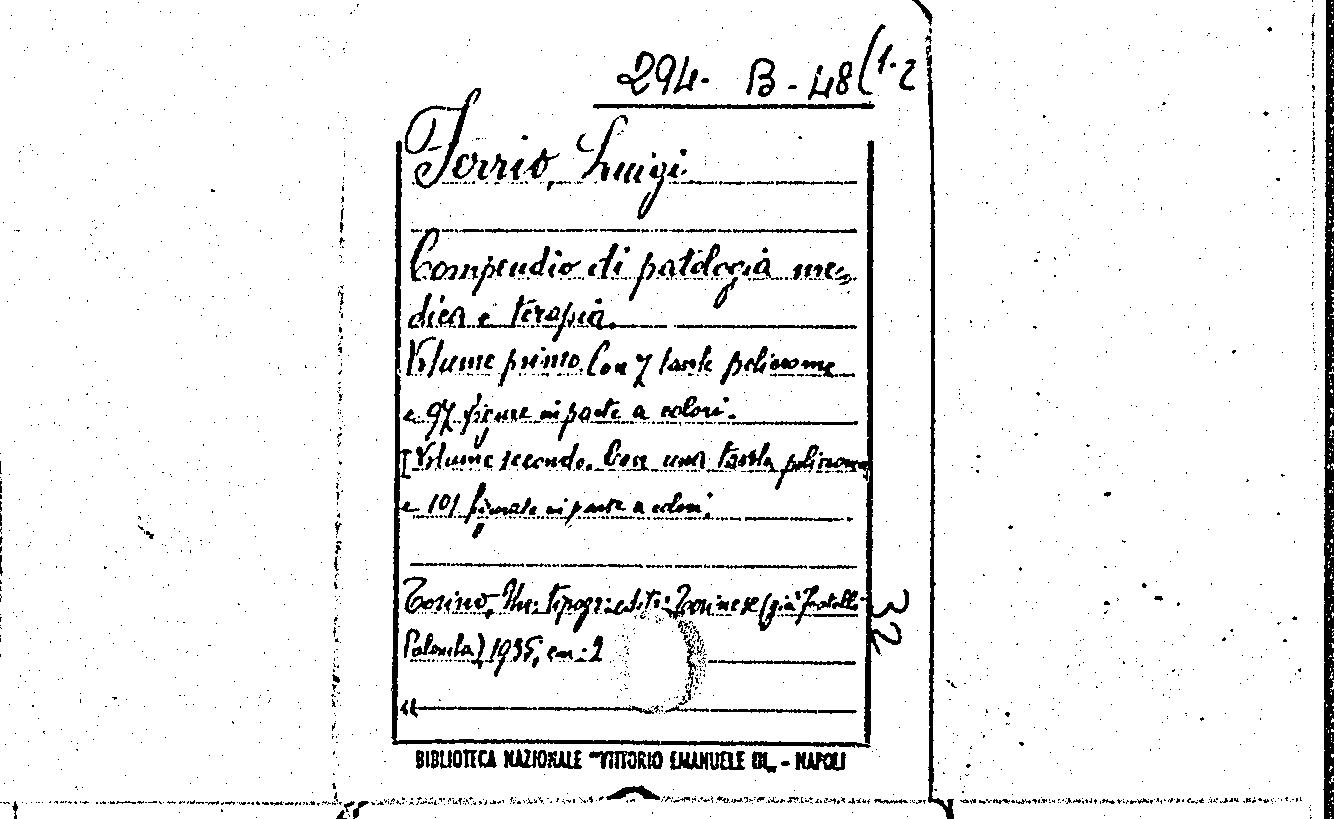 294. B - 48 (1-2
Ferrio, Luigi.
Compendio di patologia me=
dica e terapia.
Volume primo. Con 7 tavole policrome
e 97 figure in parte a colori.
[Volume secondo. Con una tavola policroma
e 101 figurate in parte a colori;
Torino, Un: tipogr: edit: Torinese (già fratelli
Pomba) 1935, cm: 2
32
BIBLIOTECA NAZIONALE "VITTORIO EMANUELE III„ - NAPOLI